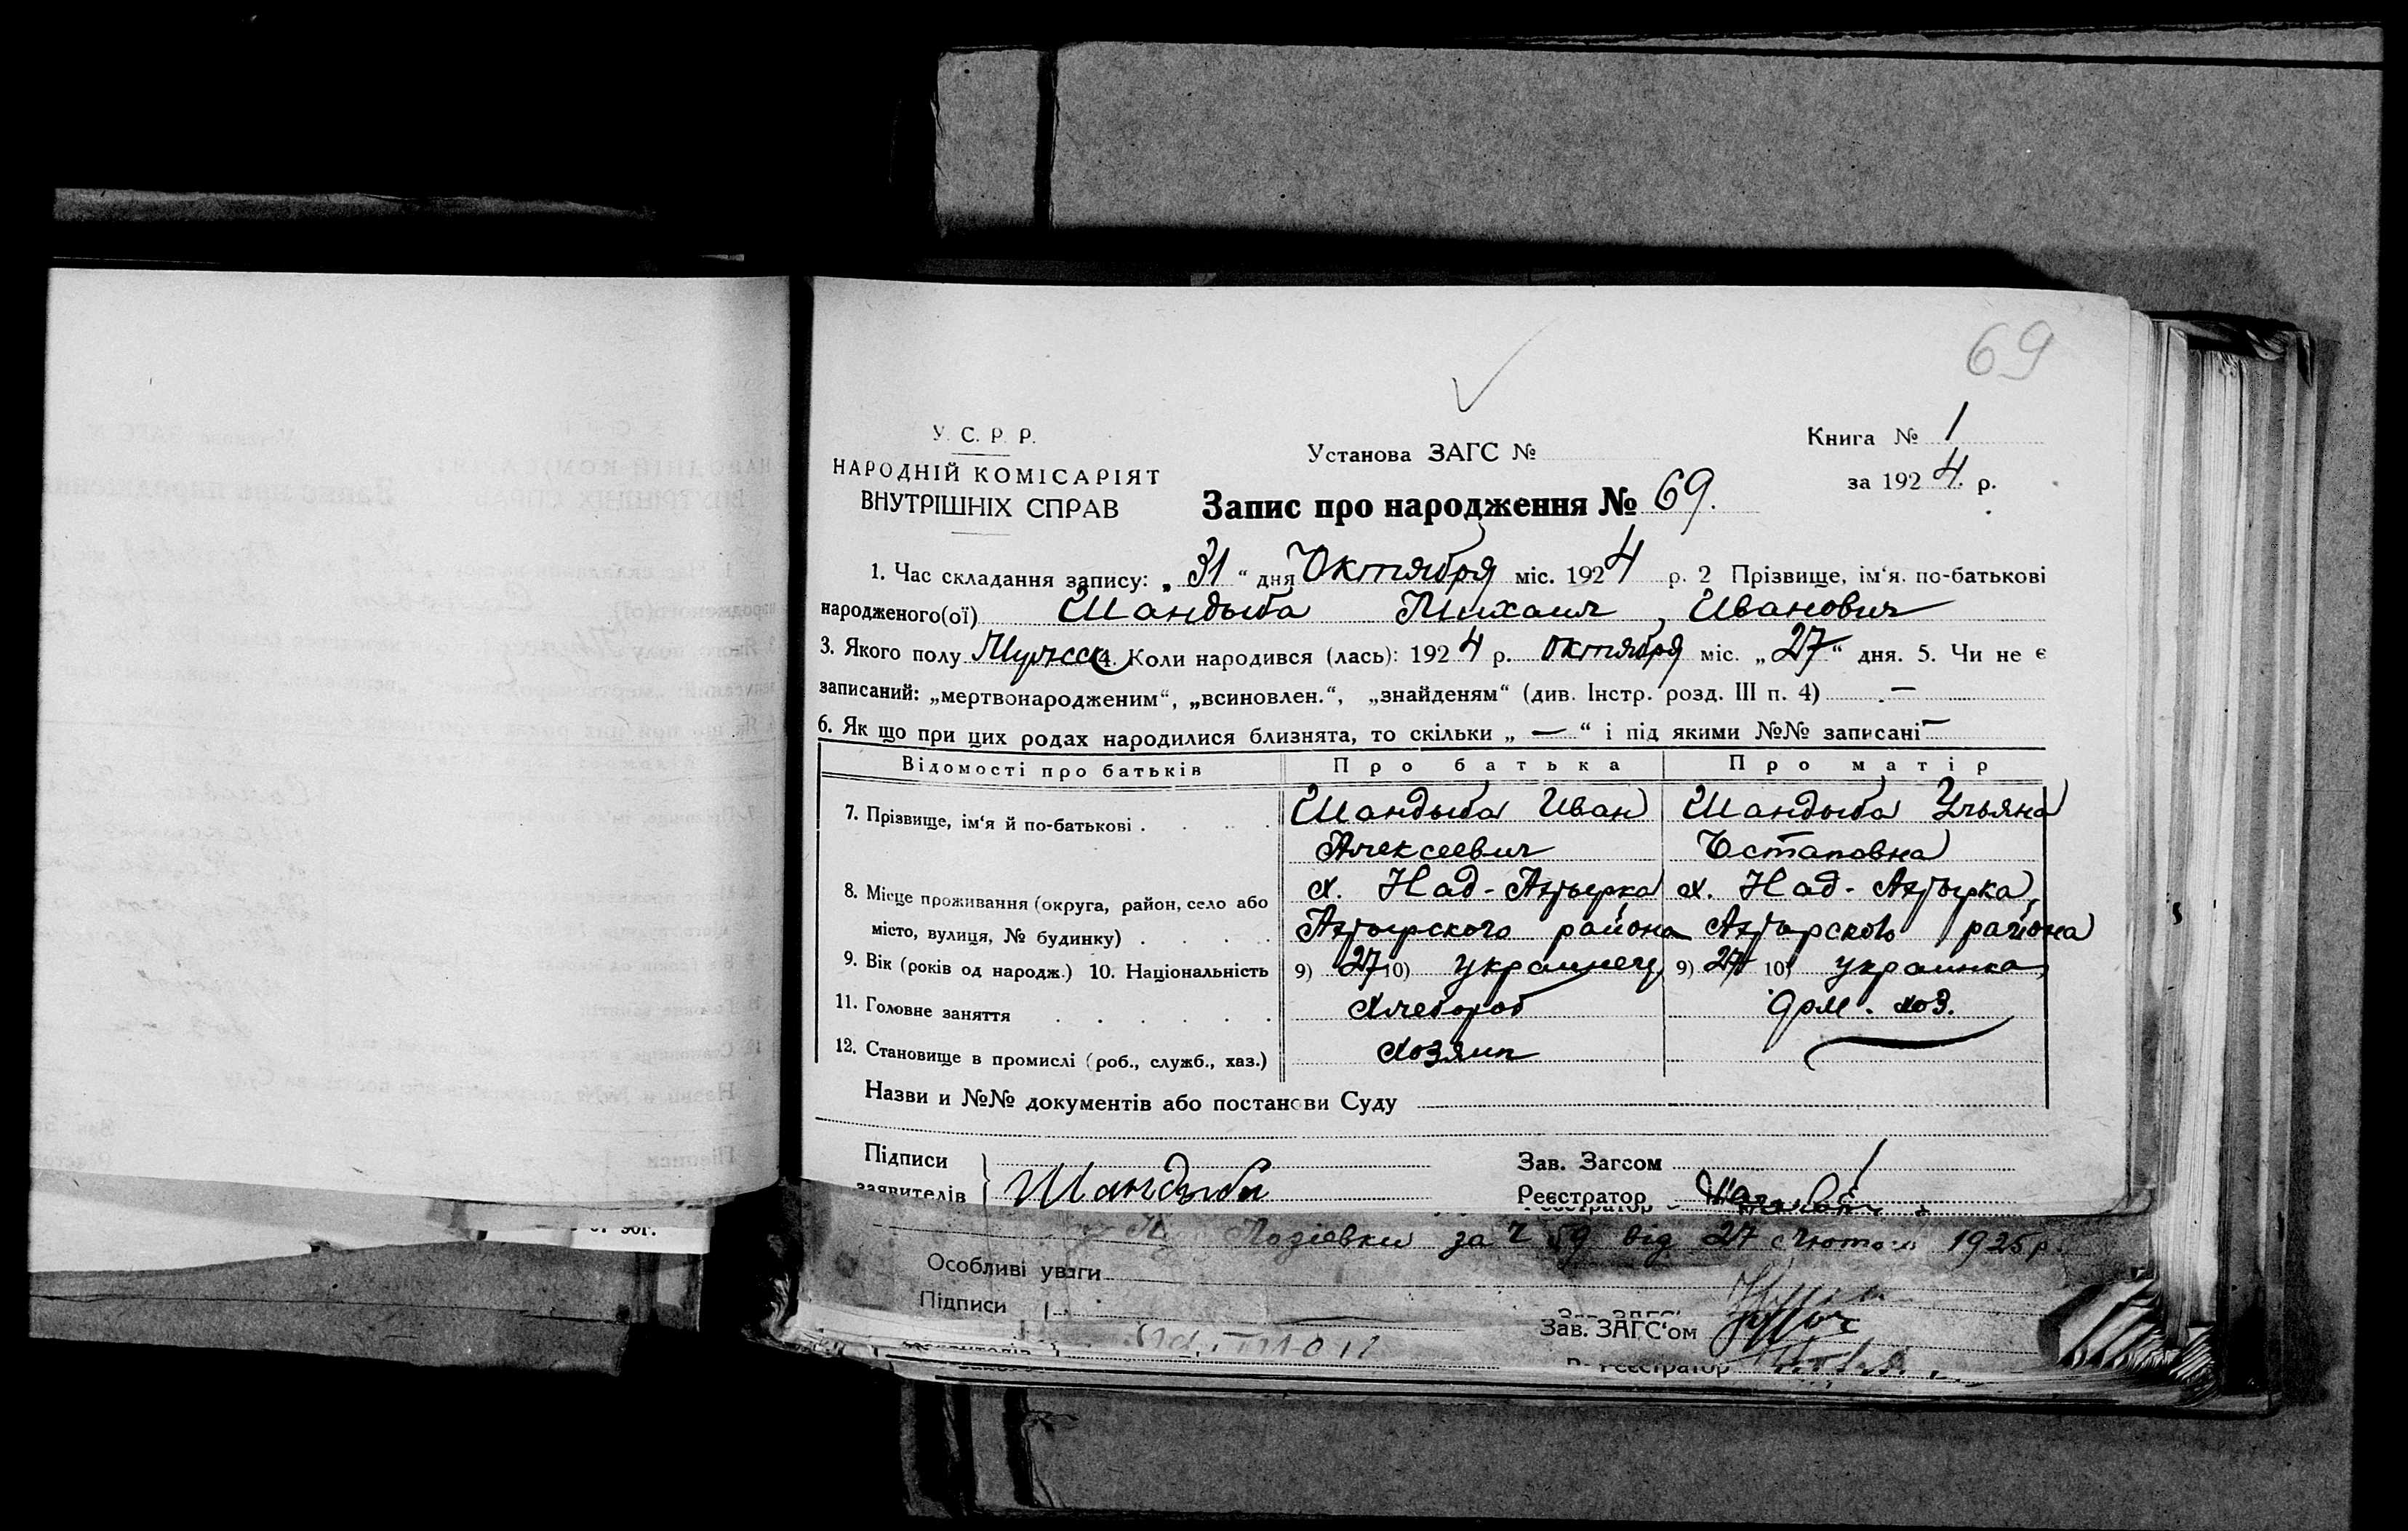 69
У. С. Р. Р.
НАРОДНІЙ КОМІСАРІЯТ
ВНУТРІШНІХ СПРАВ
Установа ЗАГС №
Книга № 1
за 1924 р.
Запис про народження № 69.
1. Час складання запису: „ 31 “ дня Октября міс. 1924 р. 2 Прізвище, ім‘я. по-батькові
народженого(ої) Шандыба Михаил, Иванович
3. Якого полу Мужск 4. Коли народився (лась): 1924 р. октября міс. „ 27 “ дня. 5. Чи не є
записаний: „мертвонародженим“, „всиновлен.“, „знайденям“ (див. Інстр. розд. III п. 4) —
6. Як що при цих родах народилися близнята, то скільки „ — “ і під якими №№ записані —
Відомості про батьків Про батька Про матір
7. Прізвище, ім‘я й по-батькові . Шандыба Иван Шандыба Ульяна
Алексеевич Остаповна
8. Місце проживання (округа, район, село або х. Над-Ахтырка х. Над-Ахтырка,
місто, вулиця, № будинку) . Ахтырского района Ахтырского района
9. Вік (років од народж.) 10. Національність 9) 27 10) украинец 9) 27 10) украинка,
11. Головне заняття Хлебороб дом. хоз.
12. Становище в промислі (роб., служб., хаз.) хозяин
Назви и №№ документів або постанови Суду
Підписи
заявителів Шандыба
Зав. Загсом
Реєстратор
за 59 від 27 лютого 1925 р.
Особливі уваги
Підписи
Зав. ЗАГС‘ом
Реєстратор